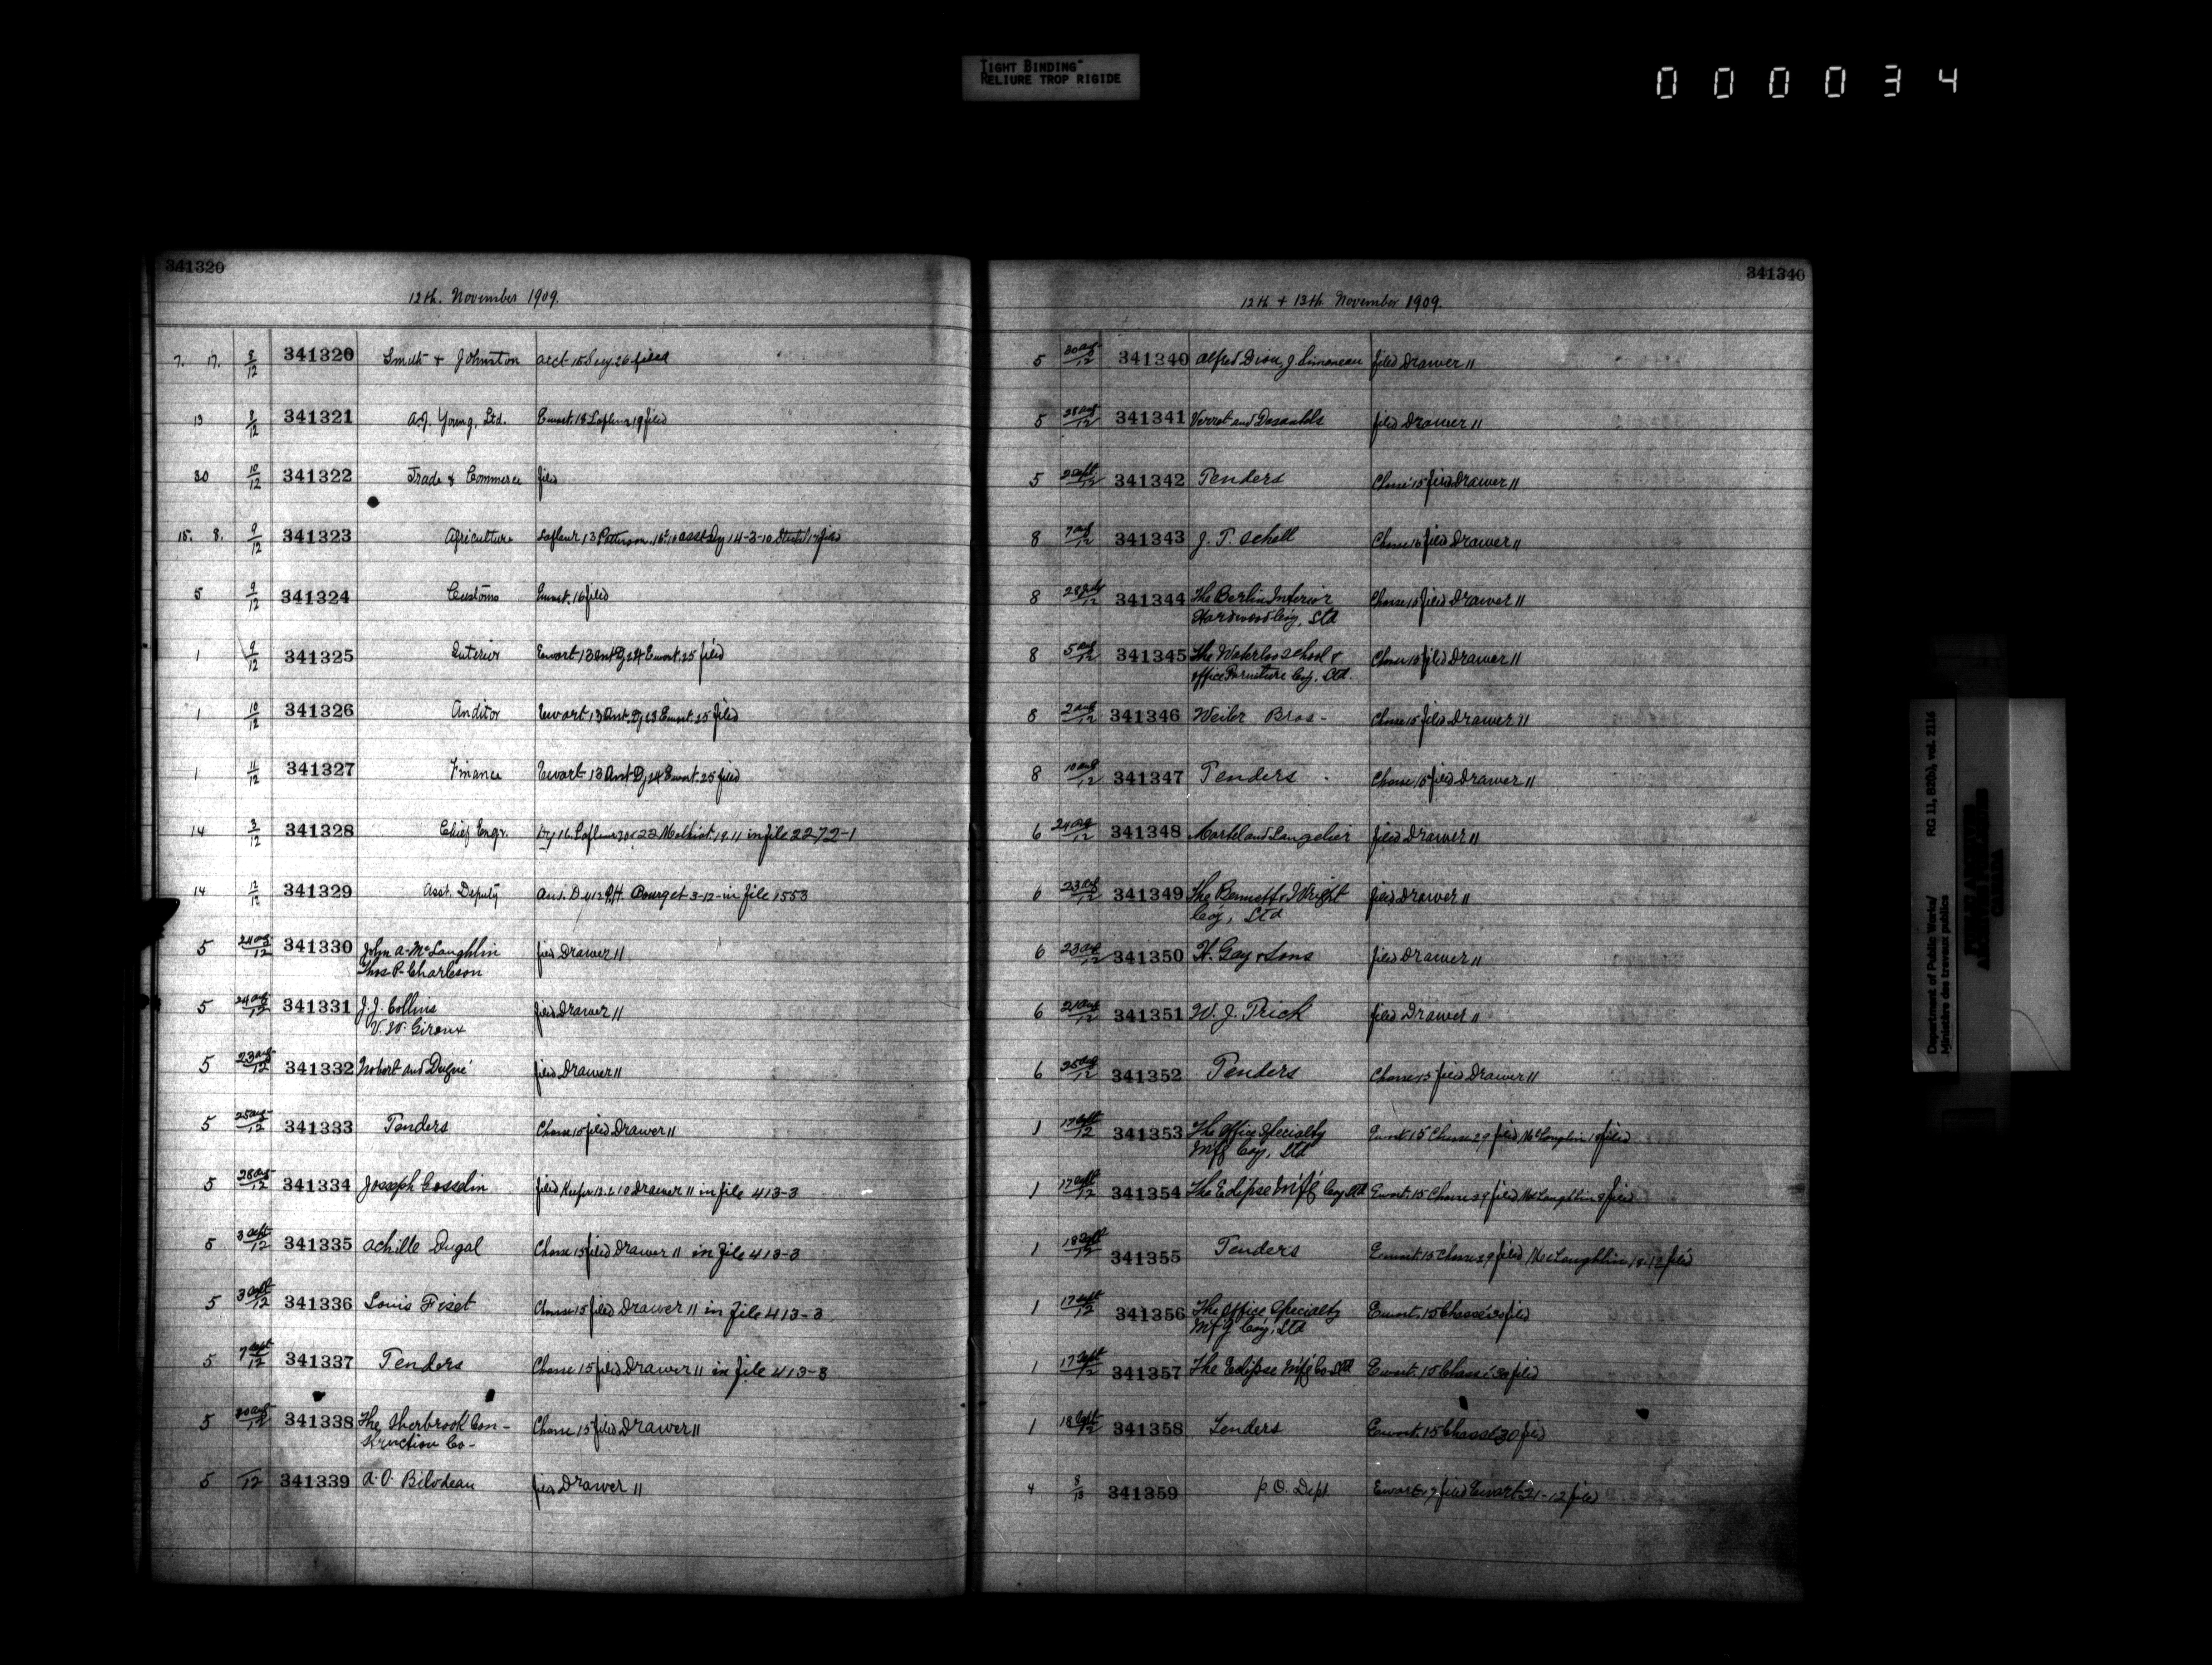 TIGHT BINDING
RELIURE TROP RIGIDE
000034
341320
12th. November 1909.
7. 17. 8/12 341320 Smith & Johnston acct 15 26 filed
13 8/12 341321 A.J. Young, Ltd. Ewart 13 Lafleur 19 filed
30 10/12 341322 Trade & Commerce filed
15. 8. 9/12 341323 Agriculture Lafleur 13 asst Dy 14-3-10 17 filed
5 9/12 341324 Customs Ewart. 16 filed
1 9/12 341325 Interior Ewart 13 Ant Dy 24 Ewart. 25 filed
1 10/12 341326 Auditor Ewart 13 Ant. Dy 23 Ewart. 25 filed
1 11/12 341327 Finance Ewart 13 Ant Dy 24 Ewart. 25 filed
14 3/12 341328 Chief Engr. Dy 16 Lafleur 19.11 in file 2272-1
14 12/12 341329 Asst. Deputy Bourget 3-12 in file 1553
5 24 aug/12 341330 John A. McLaughlin filed Drawer 11
Thos P. Charleson
5 24 aug/12 341331 J.J. Collins filed Drawer 11
V.W. Giroux
5 23 aug/12 341332 Nobert and Dugré filed Drawer 11
5 25 aug/12 341333 Tenders Chasse 15 filed Drawer 11
5 28 aug/12 341334 Joseph Gosselin filed Drawer 11 in file 413-3
5 3 sept/12 341335 Achille Dugal Chasse 15 filed Drawer 11 in file 413-3
5 3 sept/12 341336 Louis Fiset Chasse 15 filed Drawer 11 in file 413-3
5 7 sept/12 341337 Tenders Chasse 15 filed Drawer 11 in file 413-3
5 30 aug/12 341338 The Sherbrook Con- Chasse 15 filed Drawer 11
struction Co-
5 /12 341339 A.O. Bilodeau filed Drawer 11
341340
12th + 13th November 1909.
5 30 aug/12 341340 Alfred Dion, J. Simoneau filed Drawer 11
5 28 aug/12 341341 Verret and filed Drawer 11
5 sept/12 341342 Tenders Chasse 15 filed Drawer 11
8 7 aug/12 341343 J. T. Schell Chasse 15 filed Drawer 11
8 28 July/12 341344 The Berlin Interior Chasse 15 filed Drawer 11
Hardwood Coy, Ltd
8 5 aug/12 341345 The Waterloo School & Chasse 15 filed Drawer 11
office Furniture Coy. Ltd.
8 2 aug/12 341346 Weiler Bros- Chasse 15 filed Drawer 11
8 10 aug/12 341347 Tenders - Chasse 15 filed Drawer 11
6 24 aug/12 341348 Martel and Langelier filed Drawer 11
6 23 aug/12 341349 The Bennett & Wright filed Drawer 11
Coy, Ltd
6 23 aug/12 341350 H. Gay & Sons filed Drawer 11
6 21 aug/12 341351 W. J. Trick filed Drawer 11
6 25 aug/12 341352 Tenders Chasse 15 filed Drawer 11
1 17 sept/12 341353 The Office Specialty Ewart 15 Chasse 29 filed McLaughlin 18 filed
Mfg Coy, Ltd
1 17 sept/12 341354 The Eclipse Mfg Coy Ltd Ewart. 15 Chasse 29 filed McLaughlin filed
1 18 sept/12 341355 Tenders Ewart. 15 Chasse 29 filed McLaughlin 18-12 filed
1 17 sept/12 341356 The Office Specialty Ewart. 15 Chassé 30 filed
Mfg Coy, Ltd
1 17 sept/12 341357 The Eclipse Mfg Co Ltd Ewart. 15 Chassé 30 filed
1 18 sept/12 341358 Tenders Ewart. 15 Chassé 30 filed
4 8/13 341359 P.O. Dept. Ewart 17 filed Ewart 21-12 filed
Department of Public Works/ RG 11, B2(b), vol. 2116
Ministère des travaux publics